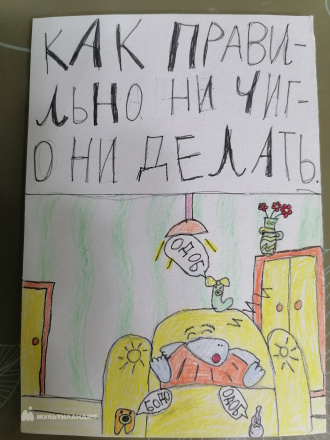 КАК ПРАВИ-
ЛЬНО НИ ЧИГ-
О НИ ДЕЛАТЬ.
ОДОБ
БОДО
ОДОБ
МУЛЬТИЛАНДИЯ